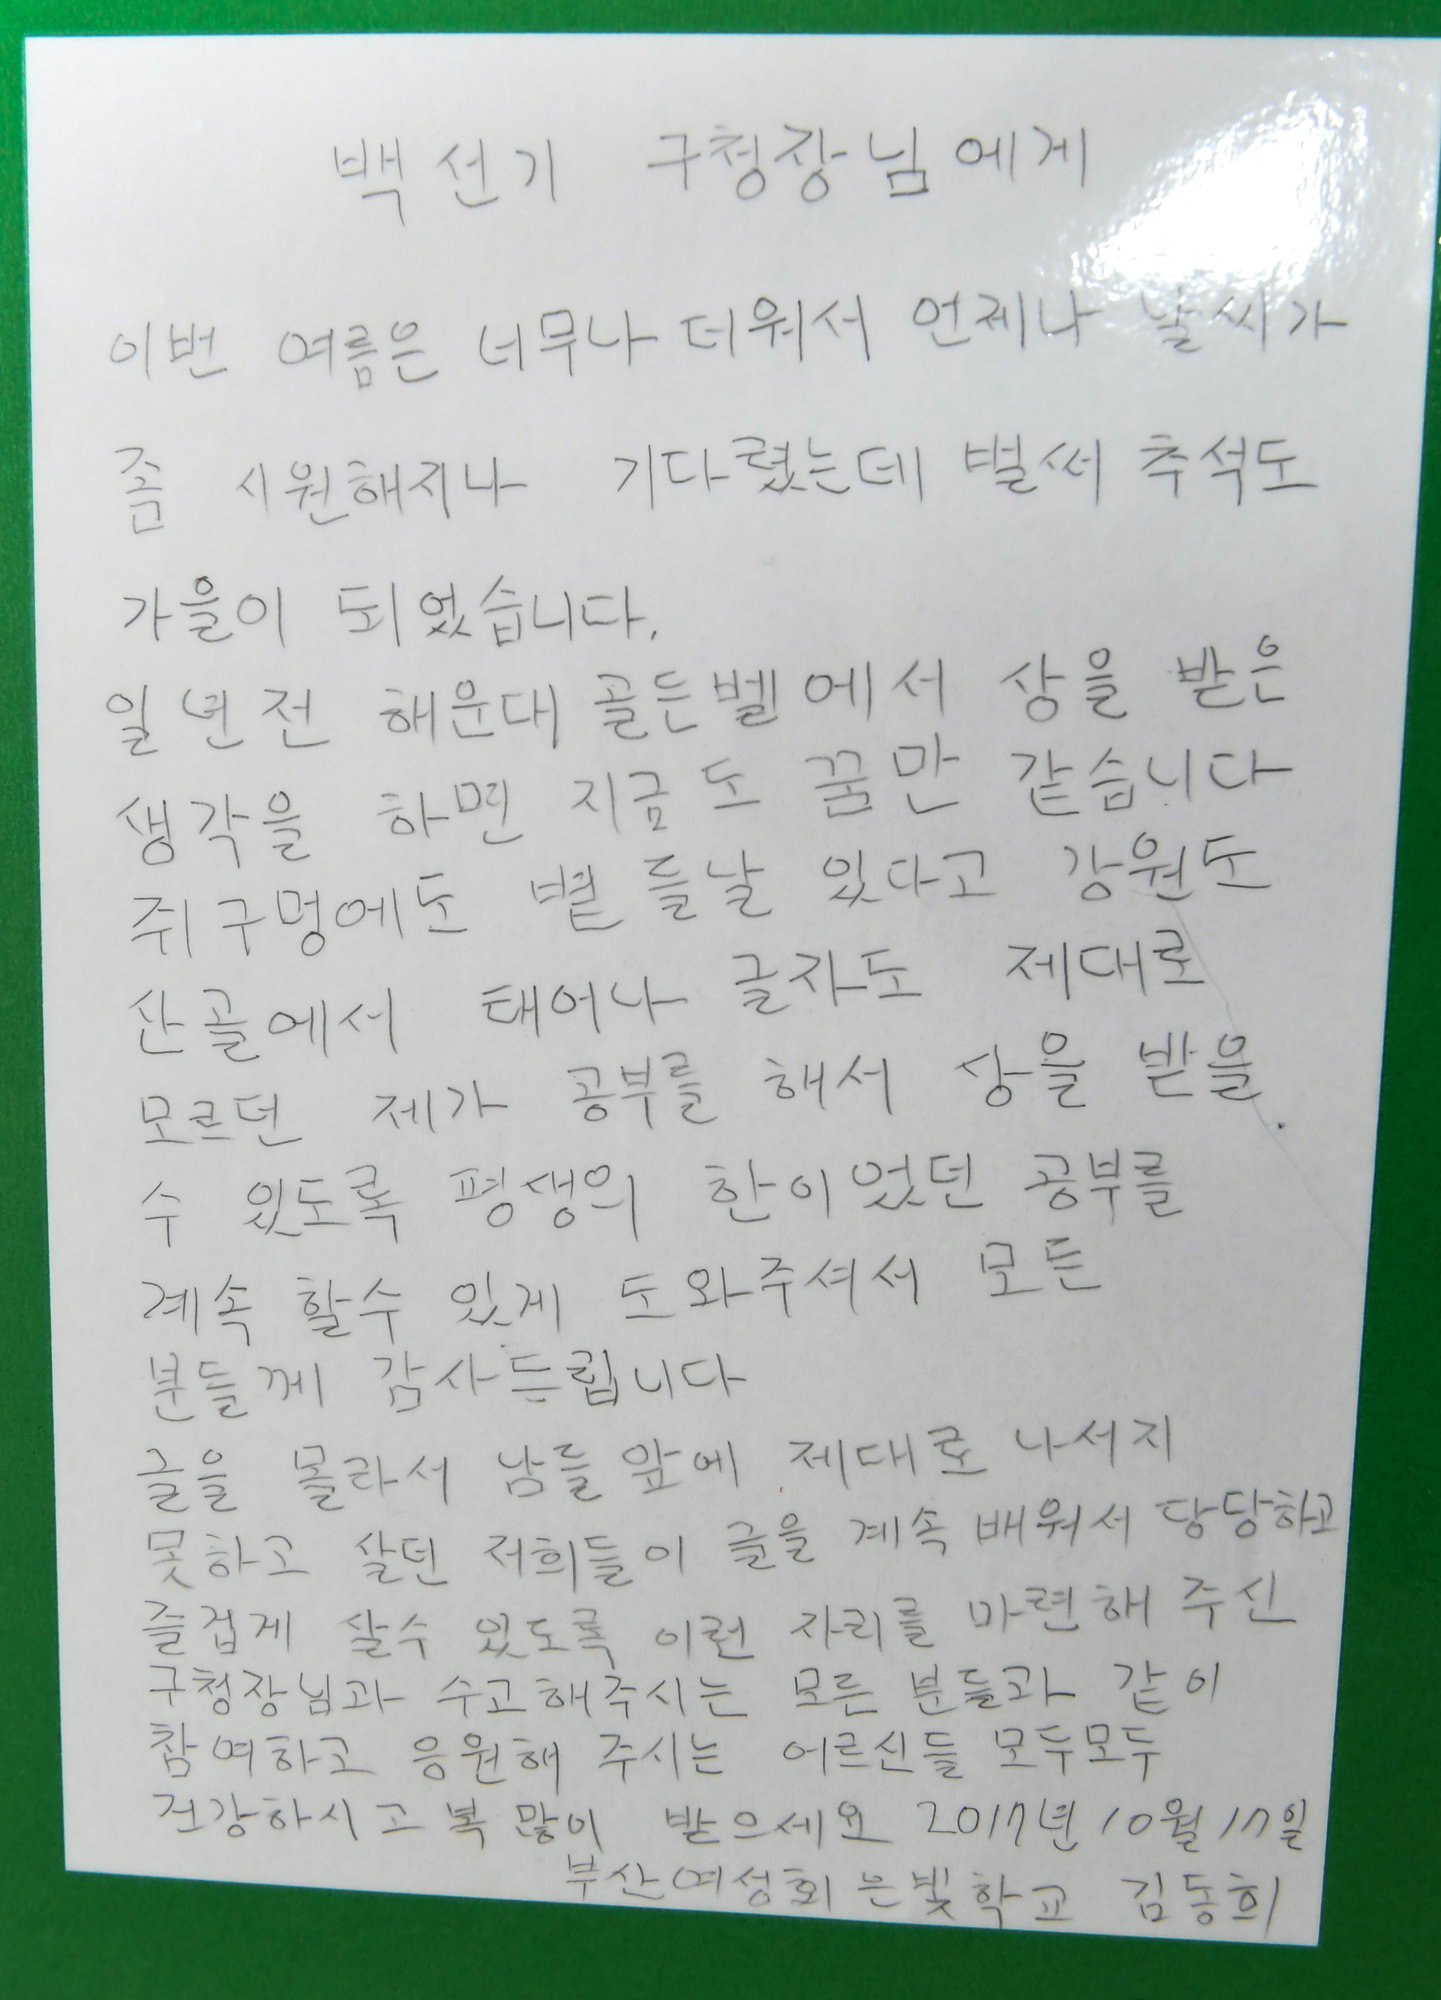 백선기 구청장님에게
이번 여름은 너무나 더워서 언제나 날씨가
좀 시원해지나 기다렸는데 벌써 추석도
가을이 되었습니다.
일년전 해운대 골든벨에서 상을 받은
생각을 하면 지금도 꿈만 같습니다
쥐구멍에도 볕 들날 있다고 강원도
산골에서 태어나 글자도 제대로
모르던 제가 공부를 해서 상을 받을
수 있도록 평생의 한이었던 공부를
계속 할수 있게 도와주셔서 모든
분들께 감사드립니다
글을 몰라서 남들앞에 제대로 나서지
못하고 살던 저희들이 글을 계속 배워서 당당하고
즐겁게 살수 있도록 이런 자리를 마련해 주신
구청장님과 수고해주시는 모든 분들과 같이
참여하고 응원해 주시는 어르신들 모두모두
건강하시고 복 많이 받으세요 2017년 10월 17일
부산여성회 은빛학교 김동희